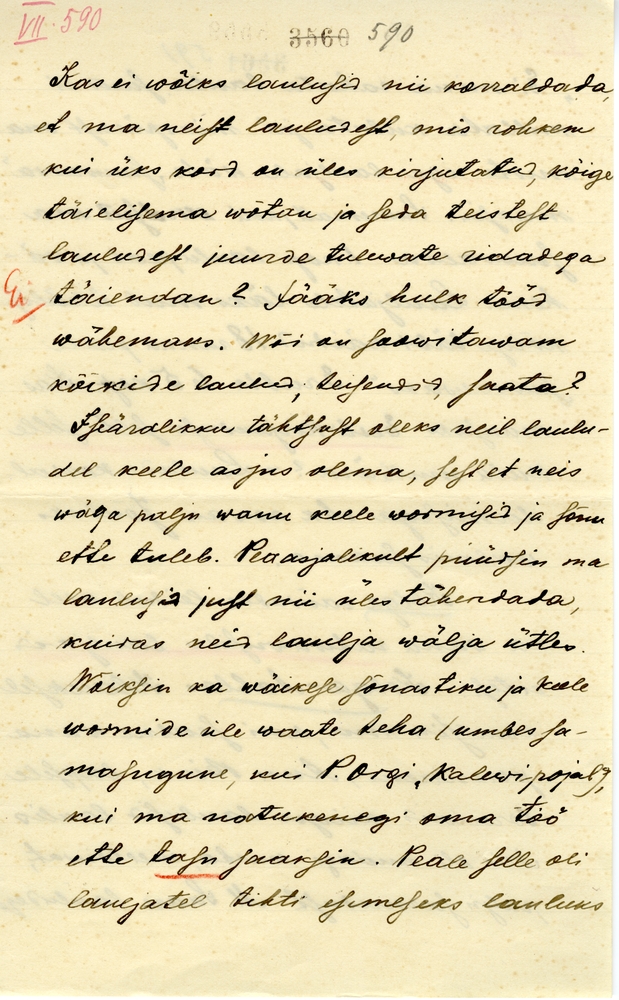 VII. 590
3560 590
Kas ei wõiks laulusid nii korraldada,
et ma neist lauludest, mis rohkem
kui üks kord on üles kirjutatud, kõige
täielisema wõtan ja seda teistest
lauludest juurde tulewate ridadega
Ei
täiendan? Jääks hulk tööd
wähemaks. Wõi on soowitawam
kõikide laulud, teisendid, saata?
Iseäralikku tähtsust oleks neil laulu-
del keele asjus olema, sest et neis
wäga palju wanu keele wormisid ja sõnu
ette tuleb. Peaasjalikult püüdsin ma
laulusid just nii üles tähendada,
kuidas neid laulja wälja ütles.
Wõiksin ka wäikese sõnastiku ja keele
wormide üle waate teha (umbes sa-
masugune, kui P. Orgi „Kalewipojal“),
kui ma natukenegi oma töö
ette tasu saaksin. Peale selle oli
lauljatel tihti esimeseks lauluks